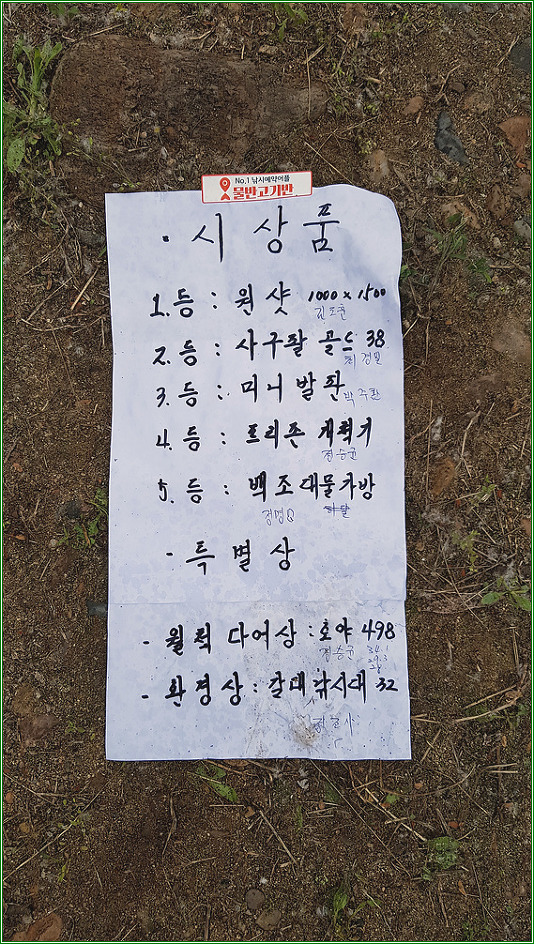 No.1 낚시예약어플
물반고기반
· 시상품
1. 등 : 원샷 1000 x 1500
2. 등 : 사구팔 골드 38
3. 등 : 미니 발판
박주환
4. 등 : 프리존 계측기
정승균
5. 등 : 백조대물가방
- 특별상
- 월척 다어상 : 호야 498
정승균
- 환경상 : 갈대 낚시대 32